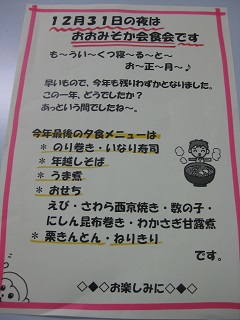 12月31日の夜は
おおみそか会食会です
も~うい~くつ寝~る~と~
お~正~月~♪
早いもので、今年も残りわずかとなりました。
この一年、どうでしたか?
あっという間でしたね~。
今年最後の夕食メニューは
* のり巻き・いなり寿司
* 年越しそば
* うま煮
* おせち
えび・さわら西京焼き・数の子・
にしん昆布巻き・わかさぎ甘露煮
* 栗きんとん・ねりきり
です。
◇◆◇お楽しみに◇◆◇